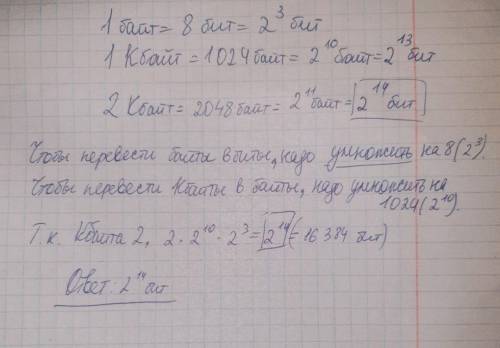 1 байт = 8 бит = 2³ бит
1 Кбайт = 1024 байт = 2¹⁰ байт = 2¹³ бит
2 Кбайт = 2048 байт = 2¹¹ байт = 2¹⁴ бит
Чтобы перевести байты в биты, надо умножить на 8 (2³).
Чтобы перевести Кбайты в байты, надо умножить на
1024 (2¹⁰).
Т.к. Кбайта 2, 2 · 2¹⁰ · 2³ = 2¹⁴ (= 16 384 бит)
Ответ: 2¹⁴ бит